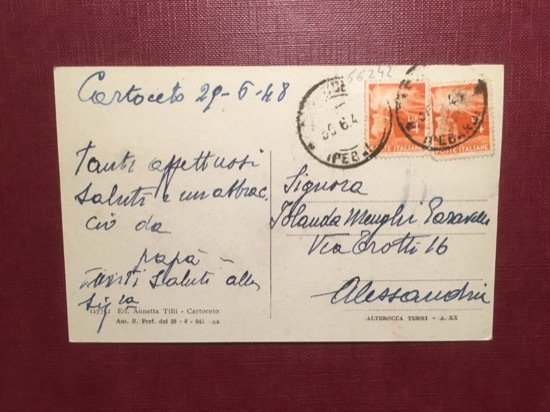 66242
Cartoceto 29-6-48
Tanti affettuosi
saluti e un abbrac
cio da
papà
Tanti saluti alla
Sig.ra
127752 Ed. Annetta Tilli - Cartoceto
Aut. R. Pref. del 28 - 8 - 942 - XX
Signora
Iolanda
Via Trotti 16
Alessandria
ALTEROCCA TERNI - A. XX
(PESARO)
(PESARO)
POSTE ITALIANE
POSTE ITALIANE